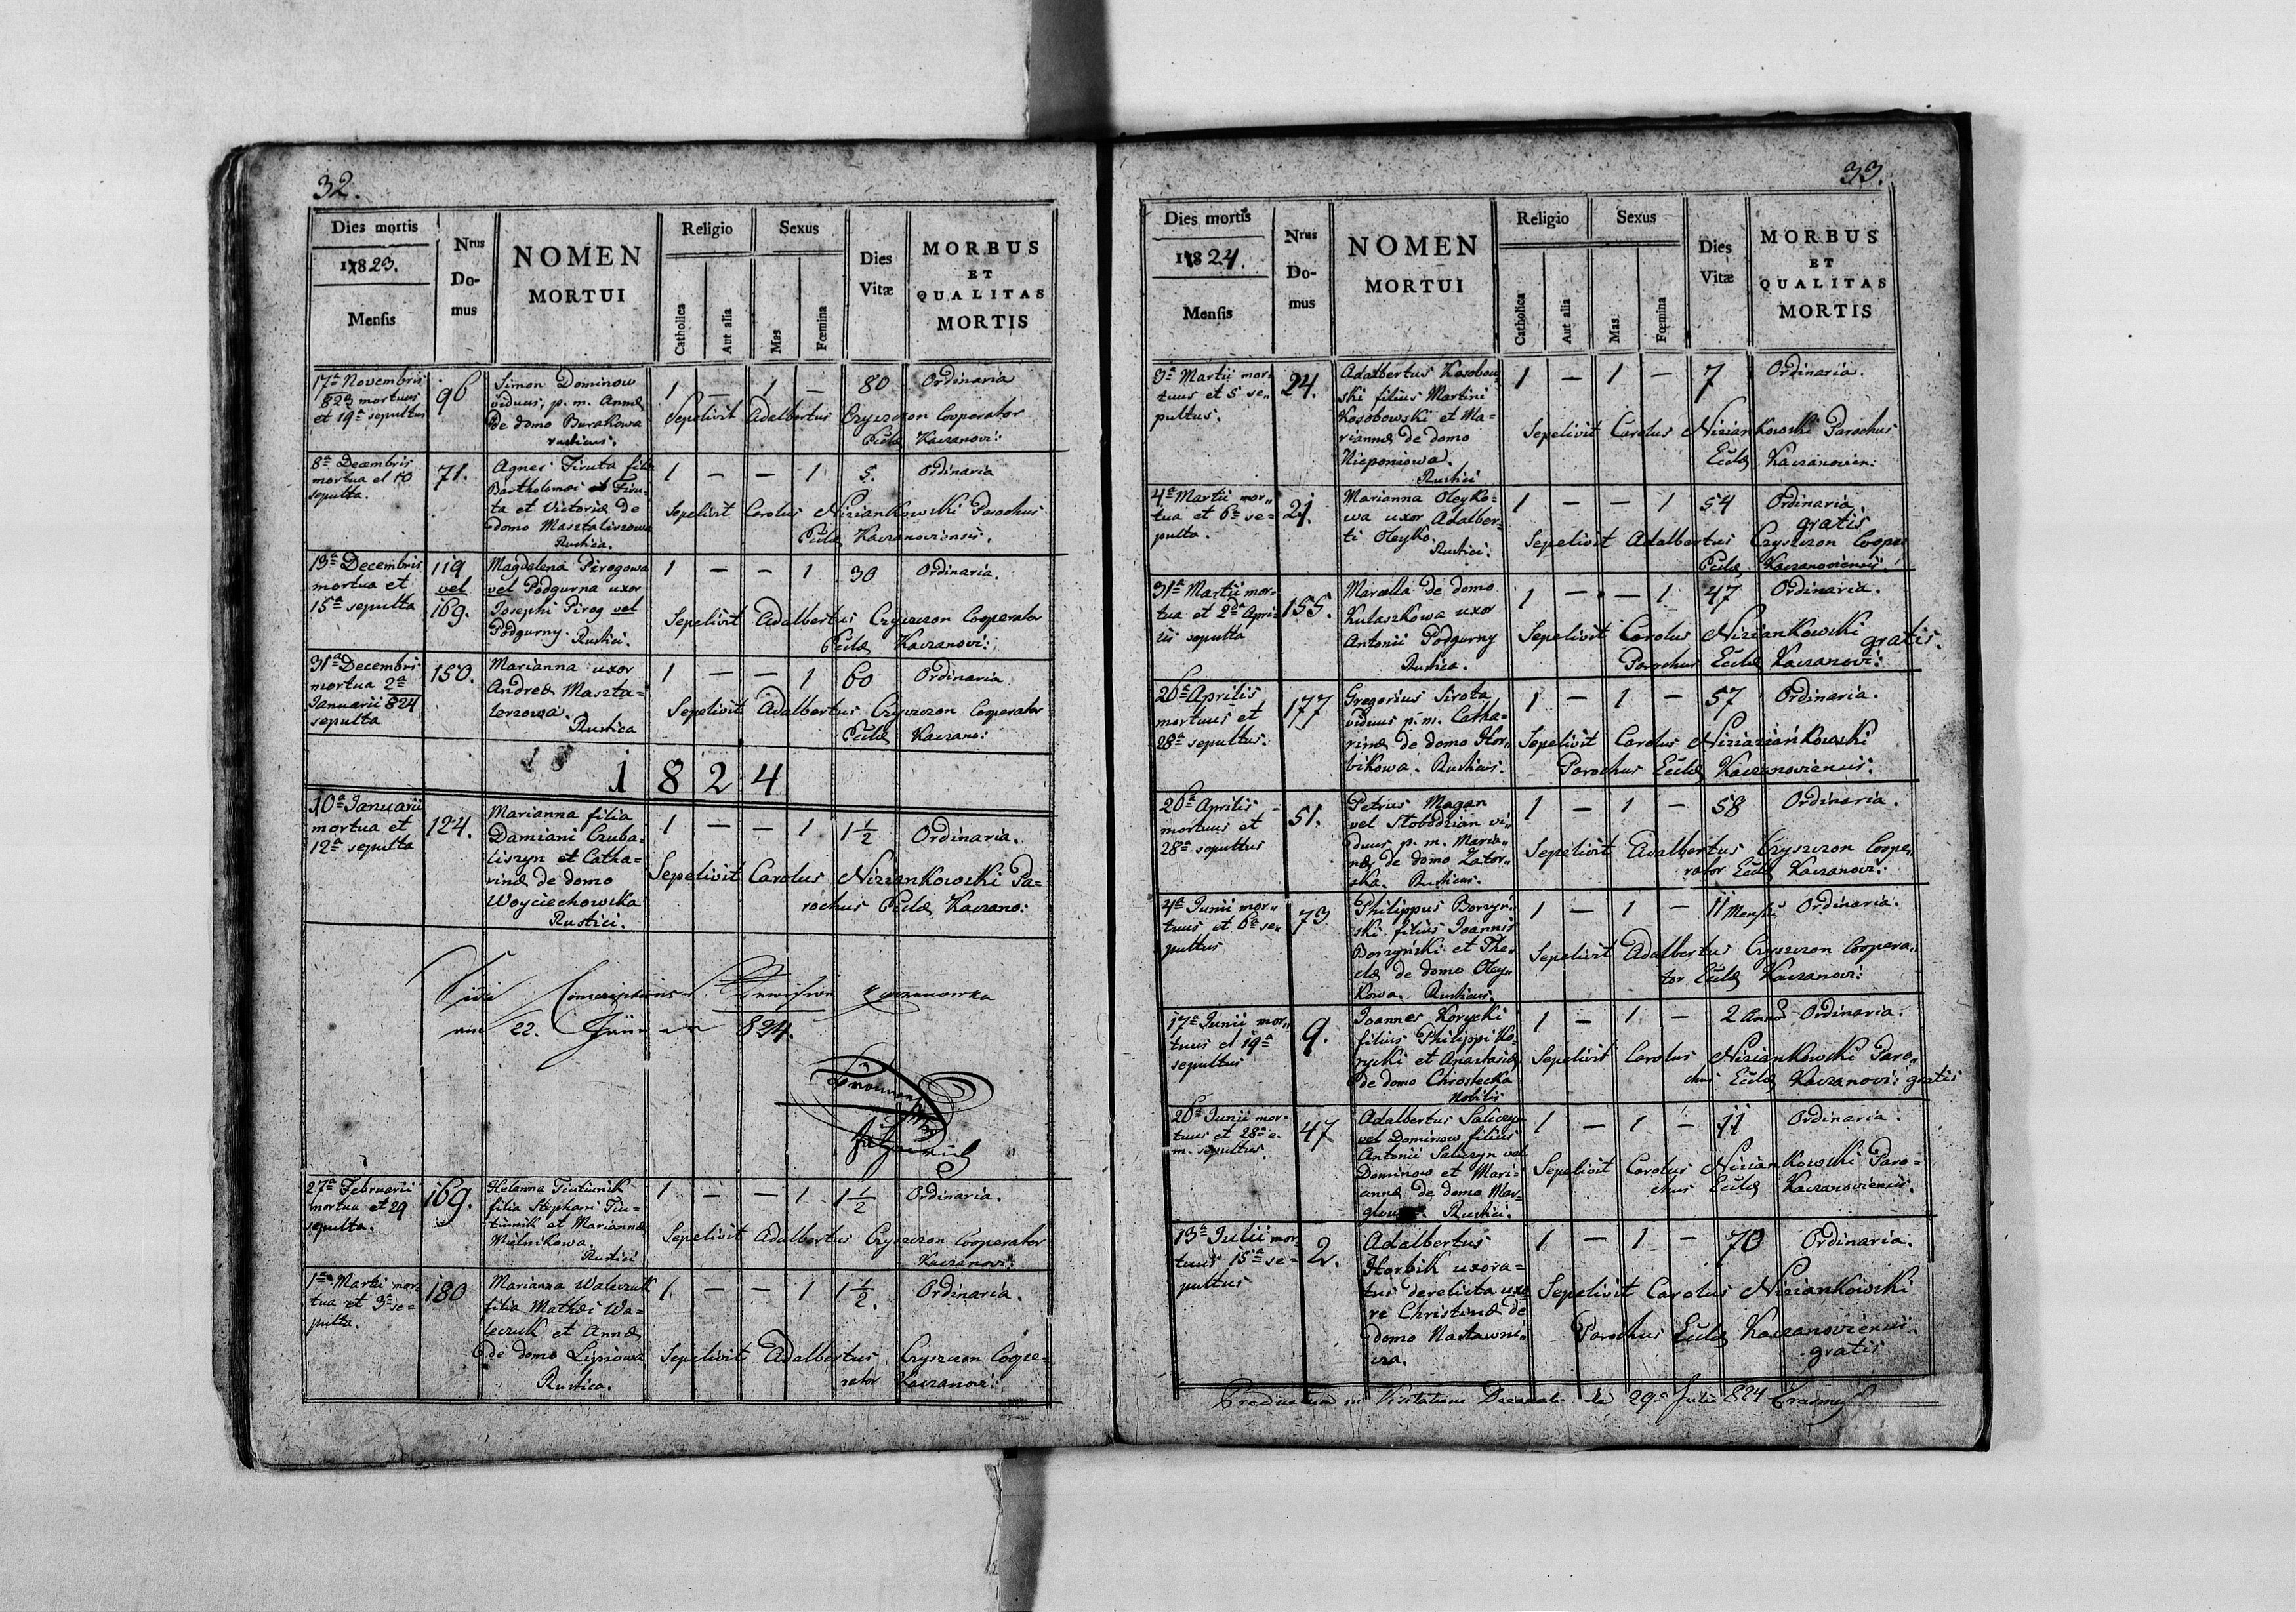 32.
Dies mortis
1823.
Mensis
Nrus
Do-
mus
NOMEN
MORTUI
Religio
Catholica
Aut alia
Sexus
Mas
Fœmina
Dies
Vitæ
MORBUS
ET
QUALITAS
MORTIS
17ª Novembris
823 mortuus
et 19ª sepultus
96
Simon Dominow
viduus, p. m. Annæ
de domo Burakowa
rusticus.
1 — 1 — 80 Ordinaria
Sepelivit Adalbertus Czyszczon Cooperator
Ecclæ Kaczanovi:
8ª Decembris
mortua et 10
sepulta.
71.
Agnes Firuta filia
Bartholomæi Firu-
ta et Victoriæ de
domo Masztalirzowa
Rustica.
1 — — 1 5. Ordinaria
Sepelivit Carolus Niziankowski Parochus
Ecclæ Kaczanoviensis.
13ª Decembris
mortua et
15ª sepulta
119
vel
169.
Magdalena Pirogowa
vel Podgurna uxor
Josephi Pirog vel
Podgurny. Rustici.
1 — — 1 30 Ordinaria.
Sepelivit Adalbertus Czyszczon Cooperator
Ecclæ Kaczanovi:
31ª Decembris
mortua 2ª
Januarii 824
sepulta
150.
Marianna uxor
Andreæ Maszta-
lerzowa.
Rustica
1 — — 1 60 Ordinaria
Sepelivit Adalbertus Czyszczon Cooperator
Ecclæ Kaczano:
1824
10ª Januarii
mortua et
12ª sepulta
124.
Marianna filia
Damiani Czuba-
liszyn et Catha-
rinæ de domo
Woyciechowska
Rustici.
1 — — 1 1½ Ordinaria.
Sepelivit Carolus Niziankowski Pa-
rochus Ecclæ Kaczano:
Vidi Conscriptions Revision Kaczanowka
am 22. Jänner 824.
27ª Februarii
mortua et 29
sepulta.
169.
Helanna Tiutiunik
filia Stephani Tiu-
tiunik et Mariannæ
Mielnikowa.
Rustici
1 — — 1 1½ Ordinaria.
Sepelivit Adalbertus Czyszczon Cooperator
Kaczanovi:
1ª Martii mor-
tua et 3ª se-
pulta.
180
Marianna Waleczuk
filia Mathæi Wa-
leczuk et Annæ
de domo Lipiowa
Rustica.
1 — — 1 ½. Ordinaria.
Sepelivit Adalbertus Czyszczon Coope-
rator Kaczanovi:
33.
Dies mortis
1824.
Mensis
Nrus
Do-
mus
NOMEN
MORTUI
Religio
Catholica
Aut alia
Sexus
Mas
Fœmina
Dies
Vitæ
MORBUS
ET
QUALITAS
MORTIS
3ª Martii mor-
tuus et 5 se-
pultus.
24.
Adalbertus Kosobow-
ski filius Martini
Kosobowski et Ma-
riannæ de domo
Nieponiowa.
Rustici
1 — 1 — 7 Ordinaria.
Sepelivit Carolus Niziankowski Parochus
Eccłæ Kaczanovien:
4ª Martii mor-
tua et 6ª se-
pulta.
21.
Marianna Oleyko-
wa uxor Adalber-
ti Oleyko.
Rustici.
1 — — 1 54 Ordinaria.
gratis
Sepelivit Adalbertus Czyszczon Cooper
Eccłæ Kaczanoviensis.
31ª Martii mor-
tua et 2da Apri-
lis sepulta
155.
Marcella de domo
Kulaszkowa uxor
Antonii Podgurny
Rustica.
1 — — 1 47 Ordinaria.
Sepelivit Carolus Niziankowski gratis.
Parochus Eccłæ Kaczanovi:
26ª Aprilis
mortuus et
28ª sepultus.
177
Gregorius Sirota
viduus p. m. Catha-
rinæ de domo Hor-
bikowa. Rusticus.
1 — 1 — 57 Ordinaria.
Sepelivit Carolus Niziaziánkowski
Parochus Eccłæ Kaczanoviensis.
26ª Aprilis
mortuus et
28ª sepultus
51.
Petrus Magan
vel Słobodzian vi-
duus p. m. Maria-
næ de domo Zator-
ska. Rusticus.
1 — 1 — 58 Ordinaria.
Sepelivit Adalbertus Czyszczon Coope-
rator Eccłæ Kaczanovi:
4ª Junii mor-
tuus et 6ª se-
pultus
73
Philippus Borzyn-
ski filius Joannis
Borzyński et The-
clæ de domo Oley-
kowa. Rusticus.
1 — 1 — 11 Mensis Ordinaria.
Sepelivit Adalbertus Czyszczon Coopera-
tor Eccłæ Kaczanovi:
17ª Junii mor-
tuus et 19ª
sepultus
9.
Joannes Korycki
filius Philippi Ko-
rycki et Anastasiæ
de domo Chrostecka
Nobilis
1 — 1 — 2 Anno Ordinaria.
Sepelivit Carolus Niziankowski Paro-
chus Eccłæ Kaczanovi: gratis
26ª Junii mor-
tuus et 28ª e.
m. sepultus.
47
Adalbertus Saliczyn
vel Dominow filius
Antonii Saliczyn vel
Dominow et Mari-
annæ de domo Mar-
glow Rustici.
1 — 1 — 11 Ordinaria.
Sepelivit Carolus Niziankowski Paro-
chus Eccłæ Kaczanoviensis.
13ª Julii mor-
tuus 15ª se-
pultus
2.
Adalbertus
Horbik uxora-
tus derelicta uxo
re Christinæ de
domo Nastawni-
cza.
1 — 1 — 70 Ordinaria.
Sepelivit Carolus Niziankowski
Parochus Eccłæ Kaczanoviensis.
gratis
Productum in Visitatione Decanali de 29ª Julii 824